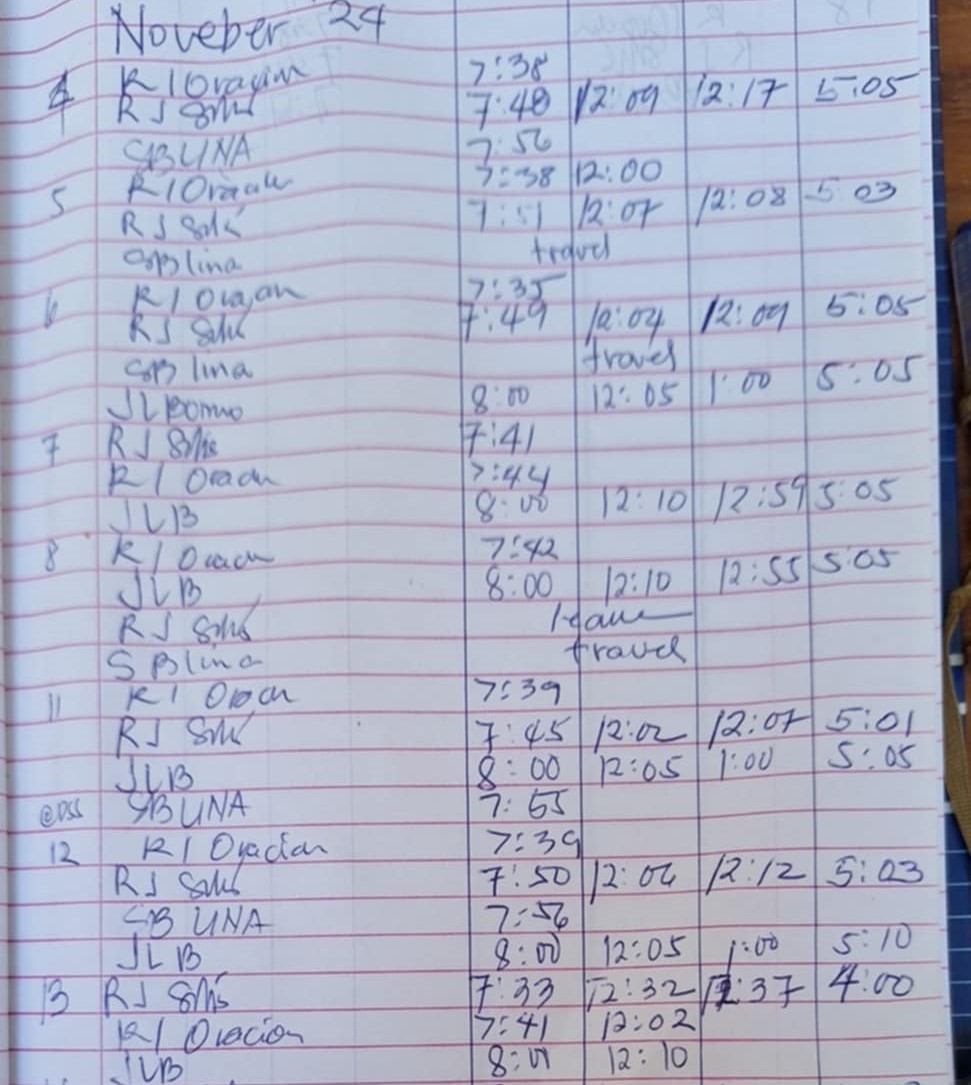 Noveber 24
4 R I Oracion 7:38
RJ Solis 7:48 12:09 12:17 5:05
SBLINA 7:56
5 R I Oracion 7:38 12:00
RJ Solis 7:51 12:07 12:08 5:03
SBlina travel
6 R I Oracion 7:35
RJ Solis 7:49 12:04 12:09 5:05
SB lina travel
JL 8:00 12:05 1:00 5:05
7 RJ Solis 7:41
R I Oracion 7:44
JLB 8:00 12:10 12:59 5:05
8 R I Oracion 7:42
JLB 8:00 12:10 12:55 5:05
RJ Solis leave
SBlina travel
11 R I Oracion 7:39
RJ Solis 7:45 12:02 12:07 5:01
JLB 8:00 12:05 1:00 5:05
@DSS SBLINA 7:55
12 R I Oracion 7:39
RJ Solis 7:50 12:06 12:12 5:03
SB LINA 7:56
JLB 8:00 12:05 1:00 5:10
13 RJ Solis 7:33 12:32 12:37 4:00
R I Oracion 7:41 12:02
JLB 8:01 12:10